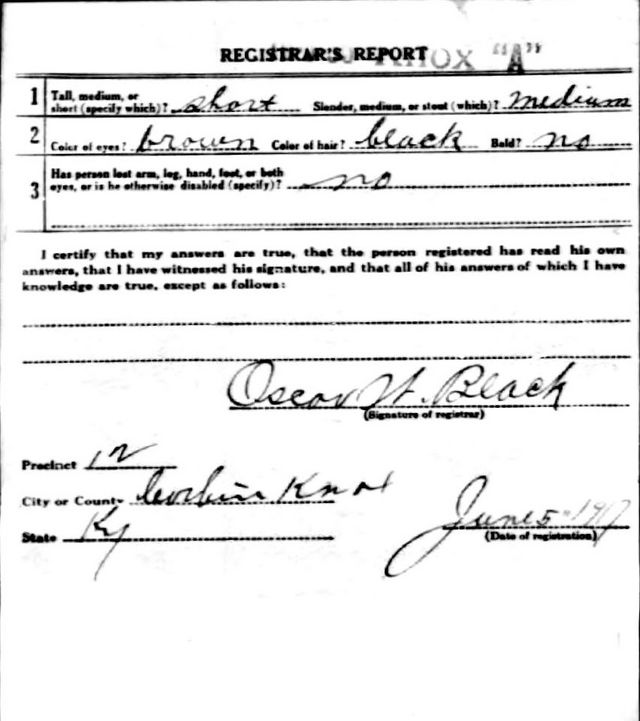 REGISTRAR'S REPORT KNOX "A"
1 Tall, medium, or short (specify which)? short Slender, medium, or stout (which)? medium
2 Color of eyes? brown Color of hair? black Bald? no
3 Has person lost arm, leg, hand, foot, or both eyes, or is he otherwise disabled (specify)? no
I certify that my answers are true, that the person registered has read his own
answers, that I have witnessed his signature, and that all of his answers of which I have
knowledge are true, except as follows:
Oscar W. Black
(Signature of registrar)
Precinct 12
City or County Corbin Knox
State Ky
June 5 - 1917
(Date of registration)